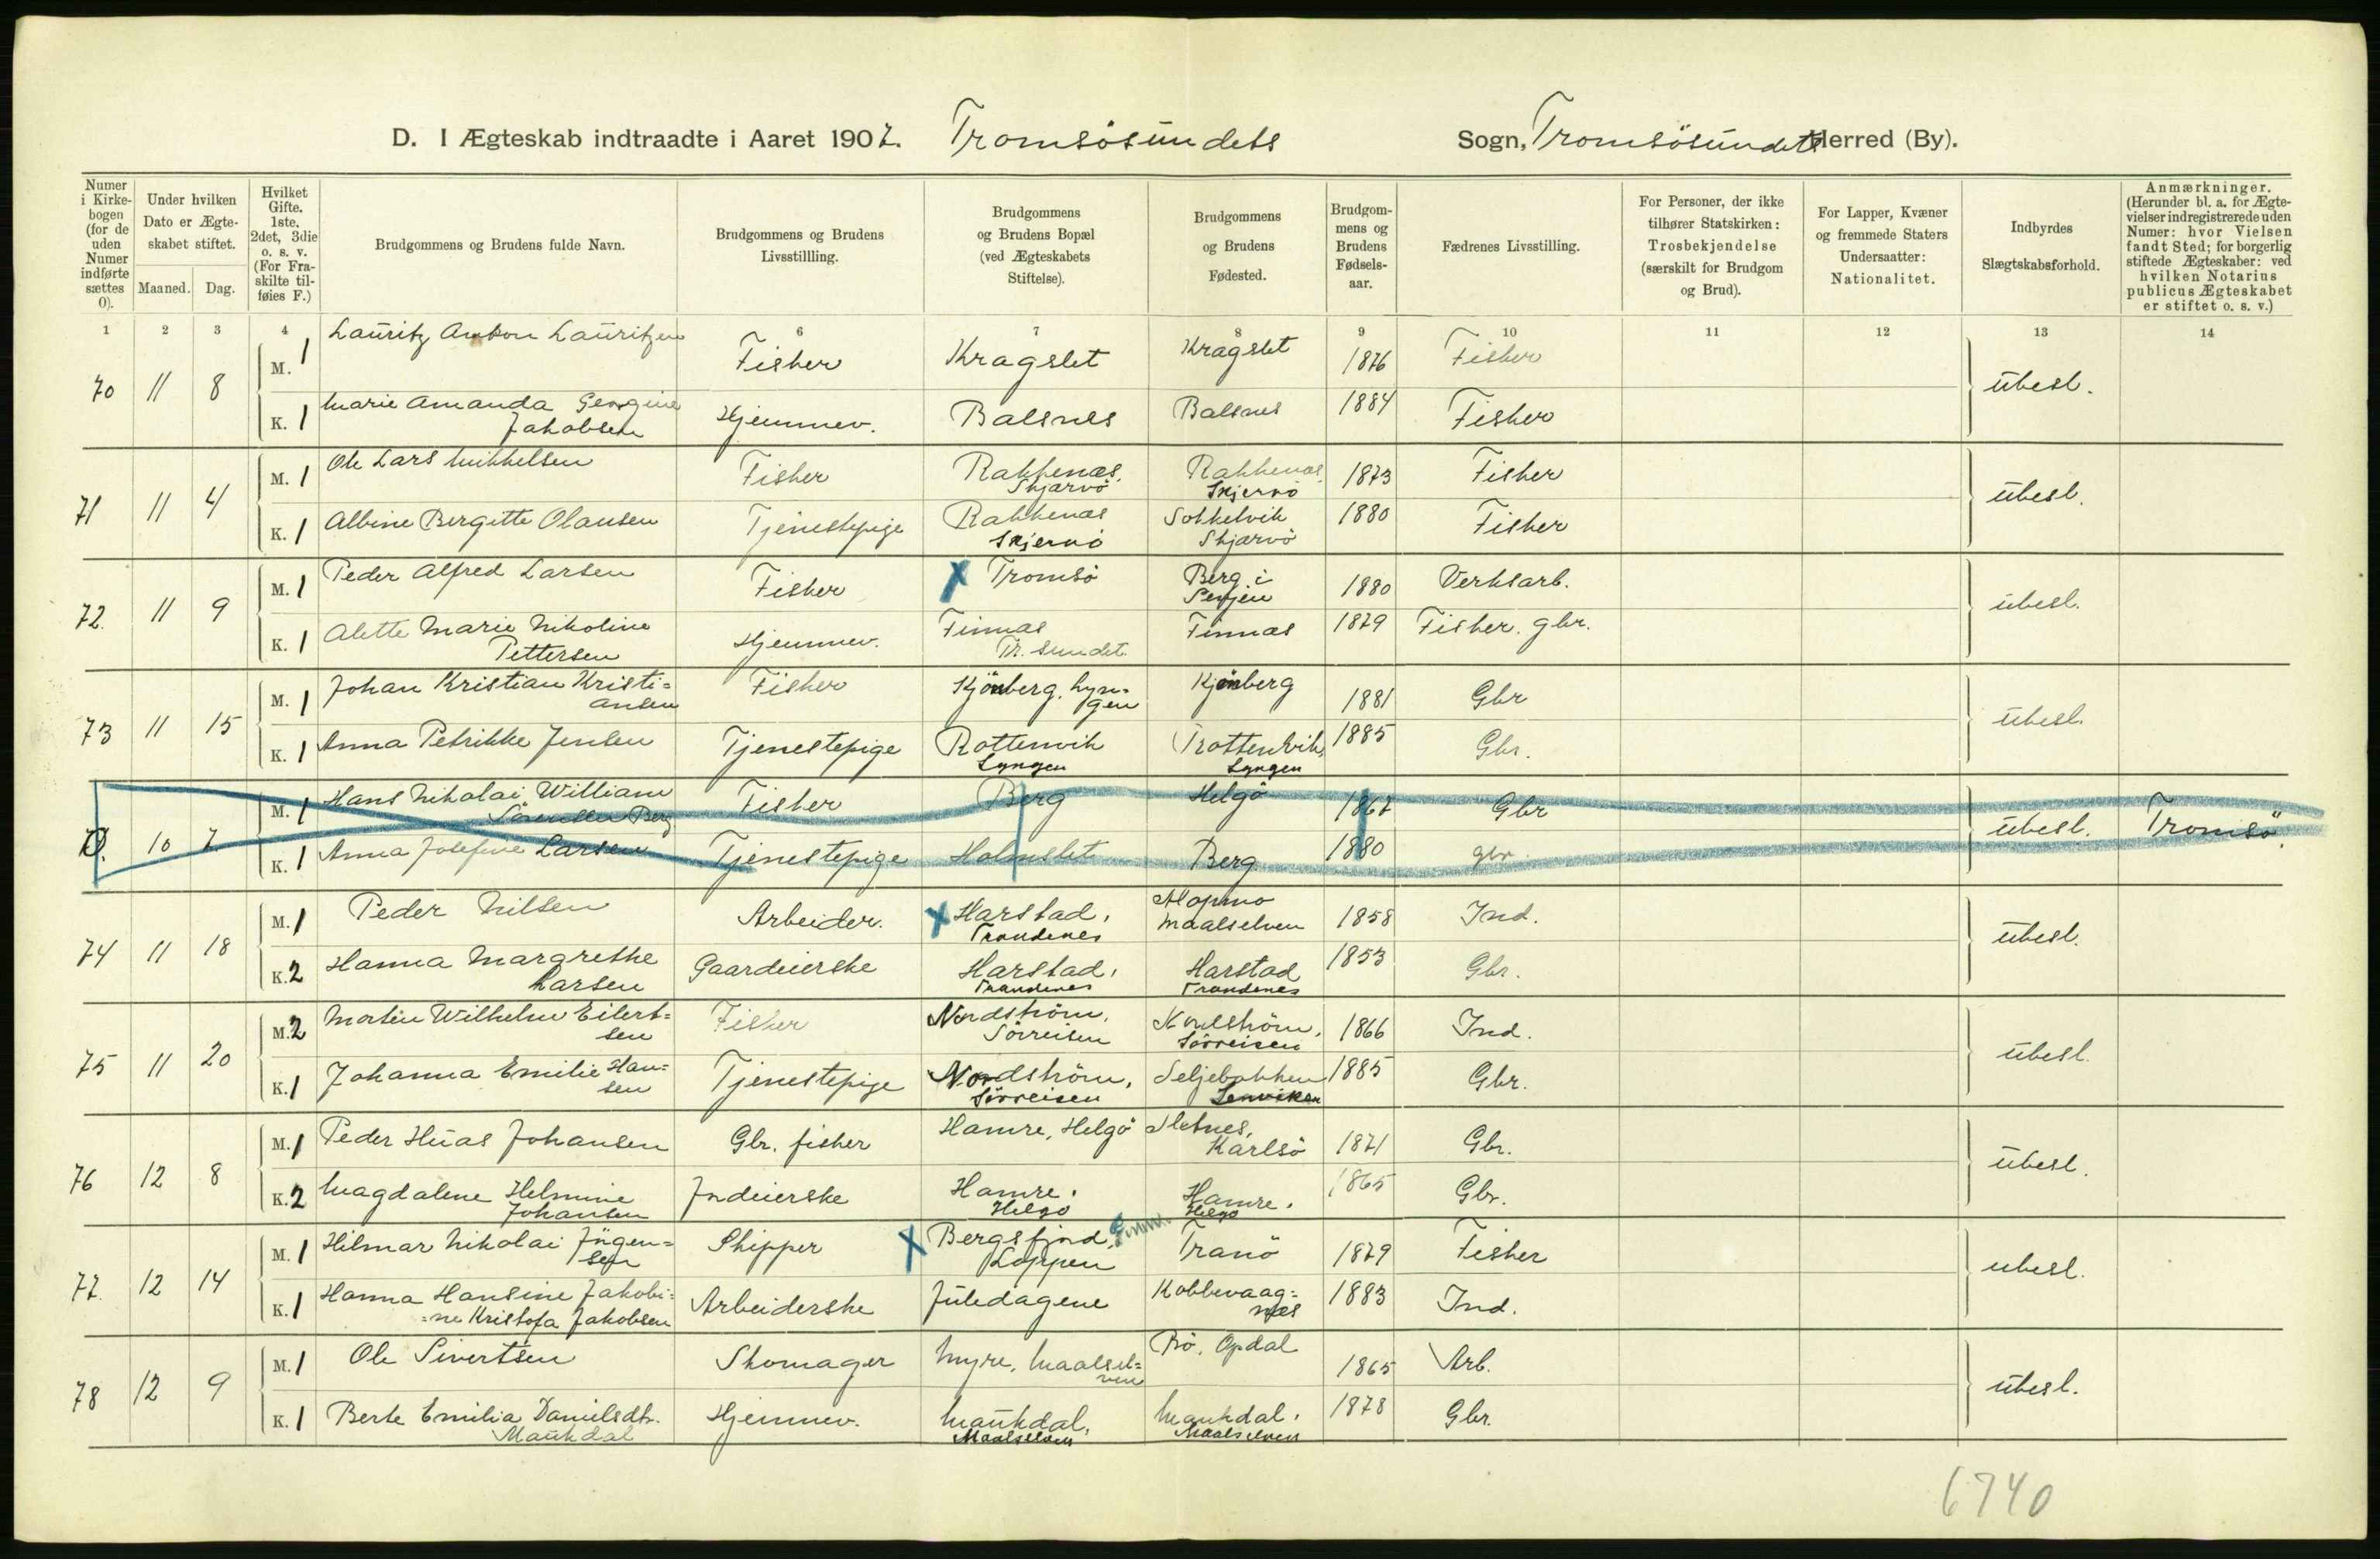 D. I Ægteskab indtraadte i Aaret 1907. Tromsösundets Sogn, Tromsösundets Herred (By).
Numer i Kirkebogen (for de uden Numer indførte sættes 0).
Under hvilken Dato er Ægteskabet stiftet.
Maaned. Dag.
Hvilket Gifte. 1ste, 2det, 3die o. s. v. (For Fraskilte tilføies F.)
Brudgommens og Brudens fulde Navn.
Brudgommens og Brudens Livsstillling.
Brudgommens og Brudens Bopæl (ved Ægteskabets Stiftelse).
Brudgommens og Brudens Fødested.
Brudgommens og Brudens Fødselsaar.
Fædrenes Livsstilling.
For Personer, der ikke tilhører Statskirken: Trosbekjendelse (særskilt for Brudgom og Brud).
For Lapper, Kvæner og fremmede Staters Undersaatter: Nationalitet.
Indbyrdes Slægtskabsforhold.
Anmærkninger. (Herunder bl. a. for Ægtevielser indregistrerede uden Numer: hvor Vielsen fandt Sted; for borgerlig stiftede Ægteskaber: ved hvilken Notarius publicus Ægteskabet er stiftet o. s. v.)
1 2 3 4 6 7 8 9 10 11 12 13 14
70 11 8 M. 1 Lauritz Anton Lauritzen Fisker Kragslet Kragslet 1876 Fisker ubesl.
K. 1 Marie Amanda Georgine Jakobsen Hjemmev. Balsnes Balsnes 1884 Fisker
71 11 4 M. 1 Ole Lars Mikkelsen Fisker Rakkenæs, Skjærvö Rakkenæs, Skjervö 1873 Fisker ubesl.
K. 1 Albine Bergitte Olausen Tjenestepige Rakkenæs Skjervö Sokkelvik Skjærvö 1880 Fisker
72. 11 9 M. 1 Peder Alfred Larsen Fisker X Tromsö Berg i Senjen 1880 Verksarb. ubesl.
K. 1 Alette Marie Nikoline Pettersen Hjemmev. Finnæs Tr. sundet. Finnæs 1879 Fisker. gbr.
73 11 15 M. 1 Johan Kristian Kristiansen Fisker Kjönberg. Lyngen Kjönberg 1881 Gbr ubesl.
K. 1 Anna Petrikke Jensen Tjenestepige Rottenvik Lyngen Rottenvik, Lyngen 1885 Gbr.
0. 10 7. M. 1 Hans Nikolai William Sörensen Berg Fisker Berg Helgö 1867 Gbr ubesl. Tromsö.
K. 1 Anna Josefine Larsen Tjenestepige Holmslet Berg 1880 gbr
74 11 18 M. 1 Peder Nilsen Arbeider. X Harstad, Trondenes Maalselven 1858 Ind. ubesl.
K. 2 Hanna Margrethe Larsen Gaardeierske Harstad, Trondenes Harstad Trondenes 1853 Gbr.
75 11 20 M. 2 Morten Wilhelm Eilertsen Fisker Nordström, Sörreisen Nordström, Sörreisen 1866 Ind. ubesl.
K. 1 Johanna Emilie Hansen Tjenestepige Nordström, Sörreisen Seljebakken Lenviken 1885 Gbr.
76 12 8 M. 1 Peder Huas Johansen Gbr. fisker Hamre, Helgö Sletnes, Karlsö 1871 Gbr. ubesl.
K. 2 Magdalene Helmine Johansen Indeierske Hamre. Helgö Hamre. Helgö 1865 Gbr.
77. 12 14 M. 1 Hilmar Nikolai Jörgensen Skipper X Bergsfjord, Loppen Finm. Tranö 1879 Fisker ubesl.
K. 1 Hanna Hansine Jakobine Kristofa Jakobsen Arbeiderske Juledagene Kobbevaagnæs 1883 Ind.
78 12 9 M. 1 Ole Sivertsen Skomager Myre, Maalselven Bö, Opdal 1865 Arb. ubesl.
K. 1 Berte Emilia Danielsdtr. Maukdal Hjemmev. Maukdal, Maalselven Maukdal, Maalselven 1878 Gbr.
6740